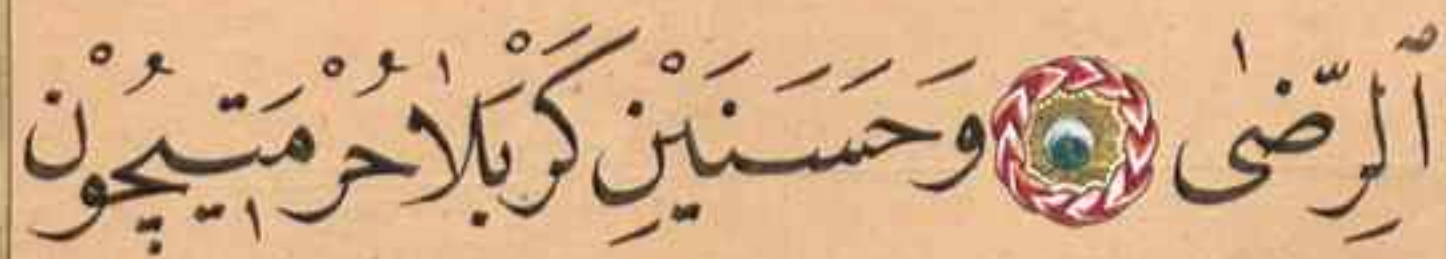 ٱلرِّضٰى وَحَسَنَيْنِ كَرْبَلَا حُرْمَتِيچُوْن